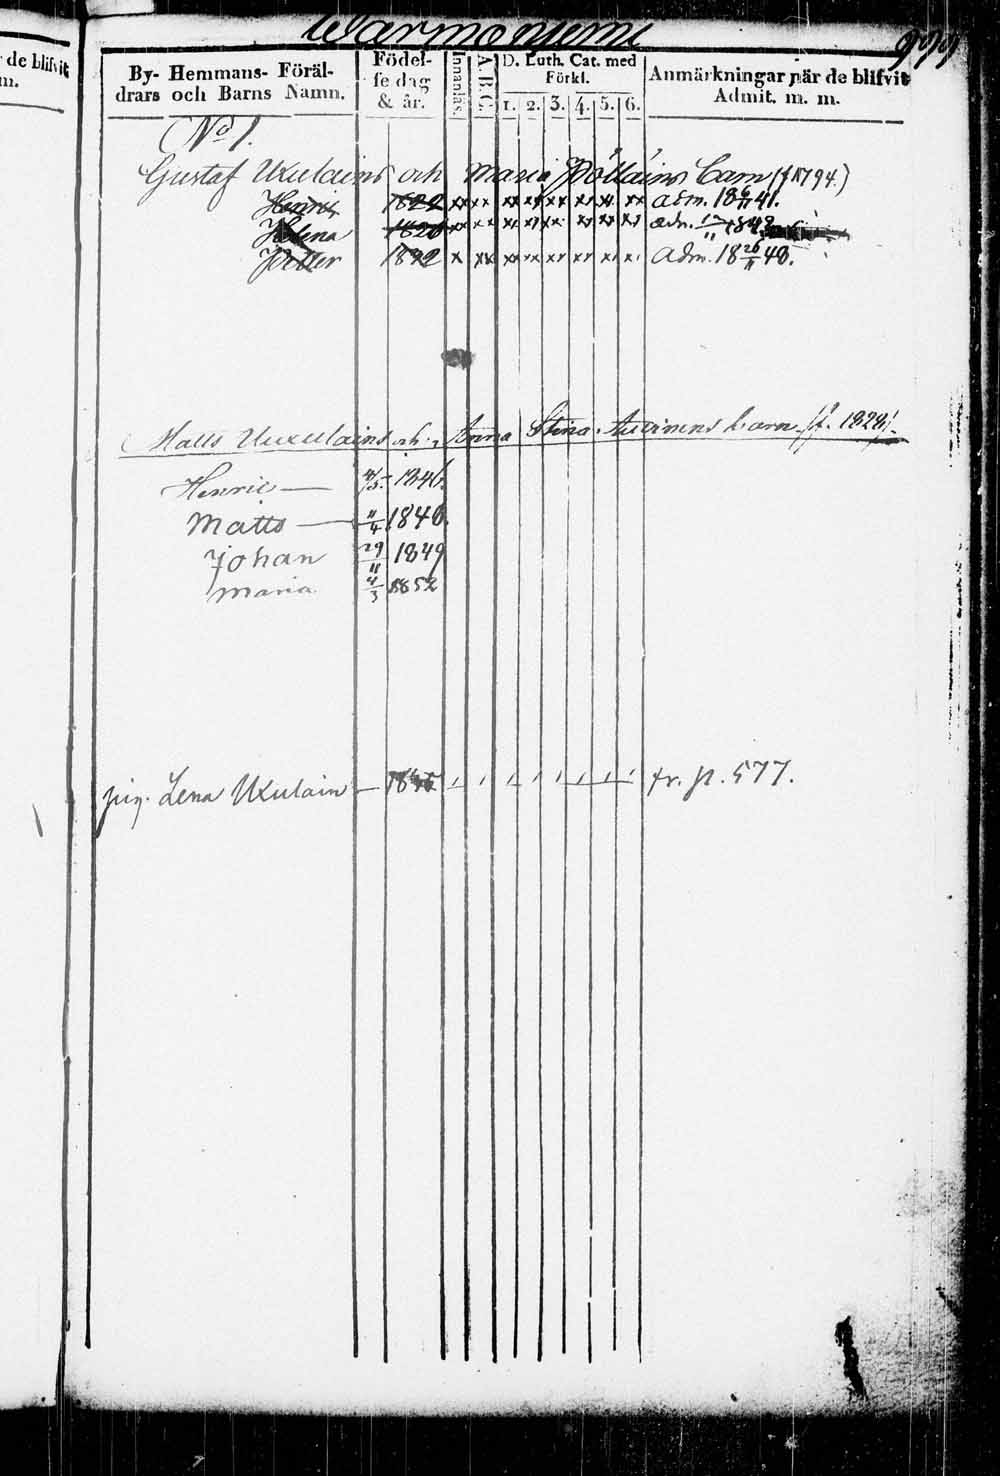 Warmoniemi
999
r de blifvit
m.
By- Hemmans- Föräl-
drars och Barns Namn.
Födel-
se dag
& år.
Innanläs.
A.B.C.
D. Luth. Cat. med
Förkl.
1. 2. 3. 4. 5. 6.
Anmärkningar när de blifvit
Admit. m. m.
No 1.
Gustaf Uxulains och Maria Pöllains Barn (f. 1794.)
1822 xx xx xx xx xx xx xx xx adm. 18 6/11 41.
Helena 1826 xx xx xx xx xx xx xx xx adm.
Petter 1832 x xx xx xx xx xx xx x. adm. 18 26/11 48.
Matts Uuxulains och Anna Stina Auvinens barn (f. 1828)
Henric — 4/5 1846.
Matts — 11/4 1848.
Johan 29/11 1849
Maria 4/3 1852
pig. Lena Uxulain — fr. p. 577.